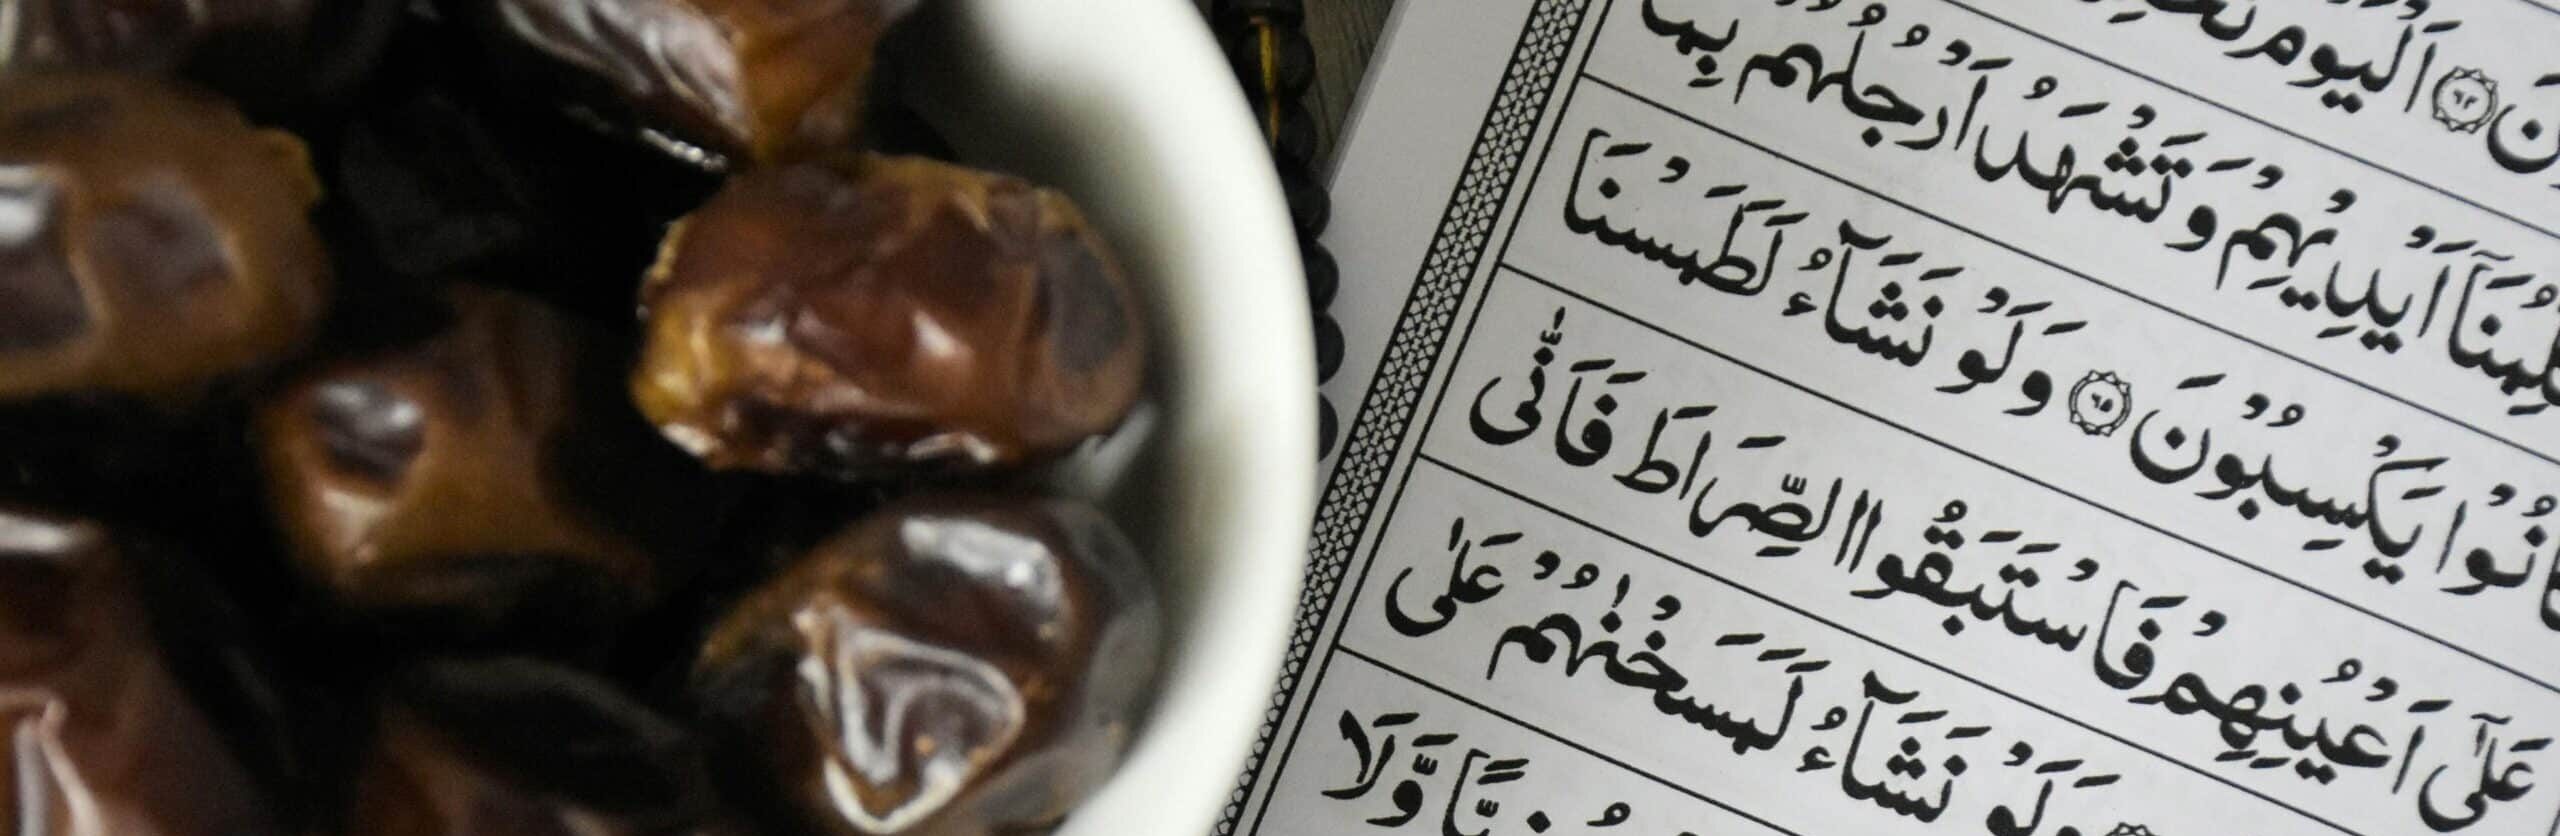 اَلْيَوْمَ
اَيْدِيْهِمْ وَتَشْهَدُ اَرْجُلُهُمْ بِمَا
كَانُوْا يَكْسِبُوْنَ ٦٥ وَلَوْ نَشَآءُ لَطَمَسْنَا
عَلٰٓى اَعْيُنِهِمْ فَاسْتَبَقُوا الصِّرَاطَ فَاَنّٰى
وَلَوْ نَشَآءُ لَمَسَخْنٰهُمْ عَلٰى
وَّلَا